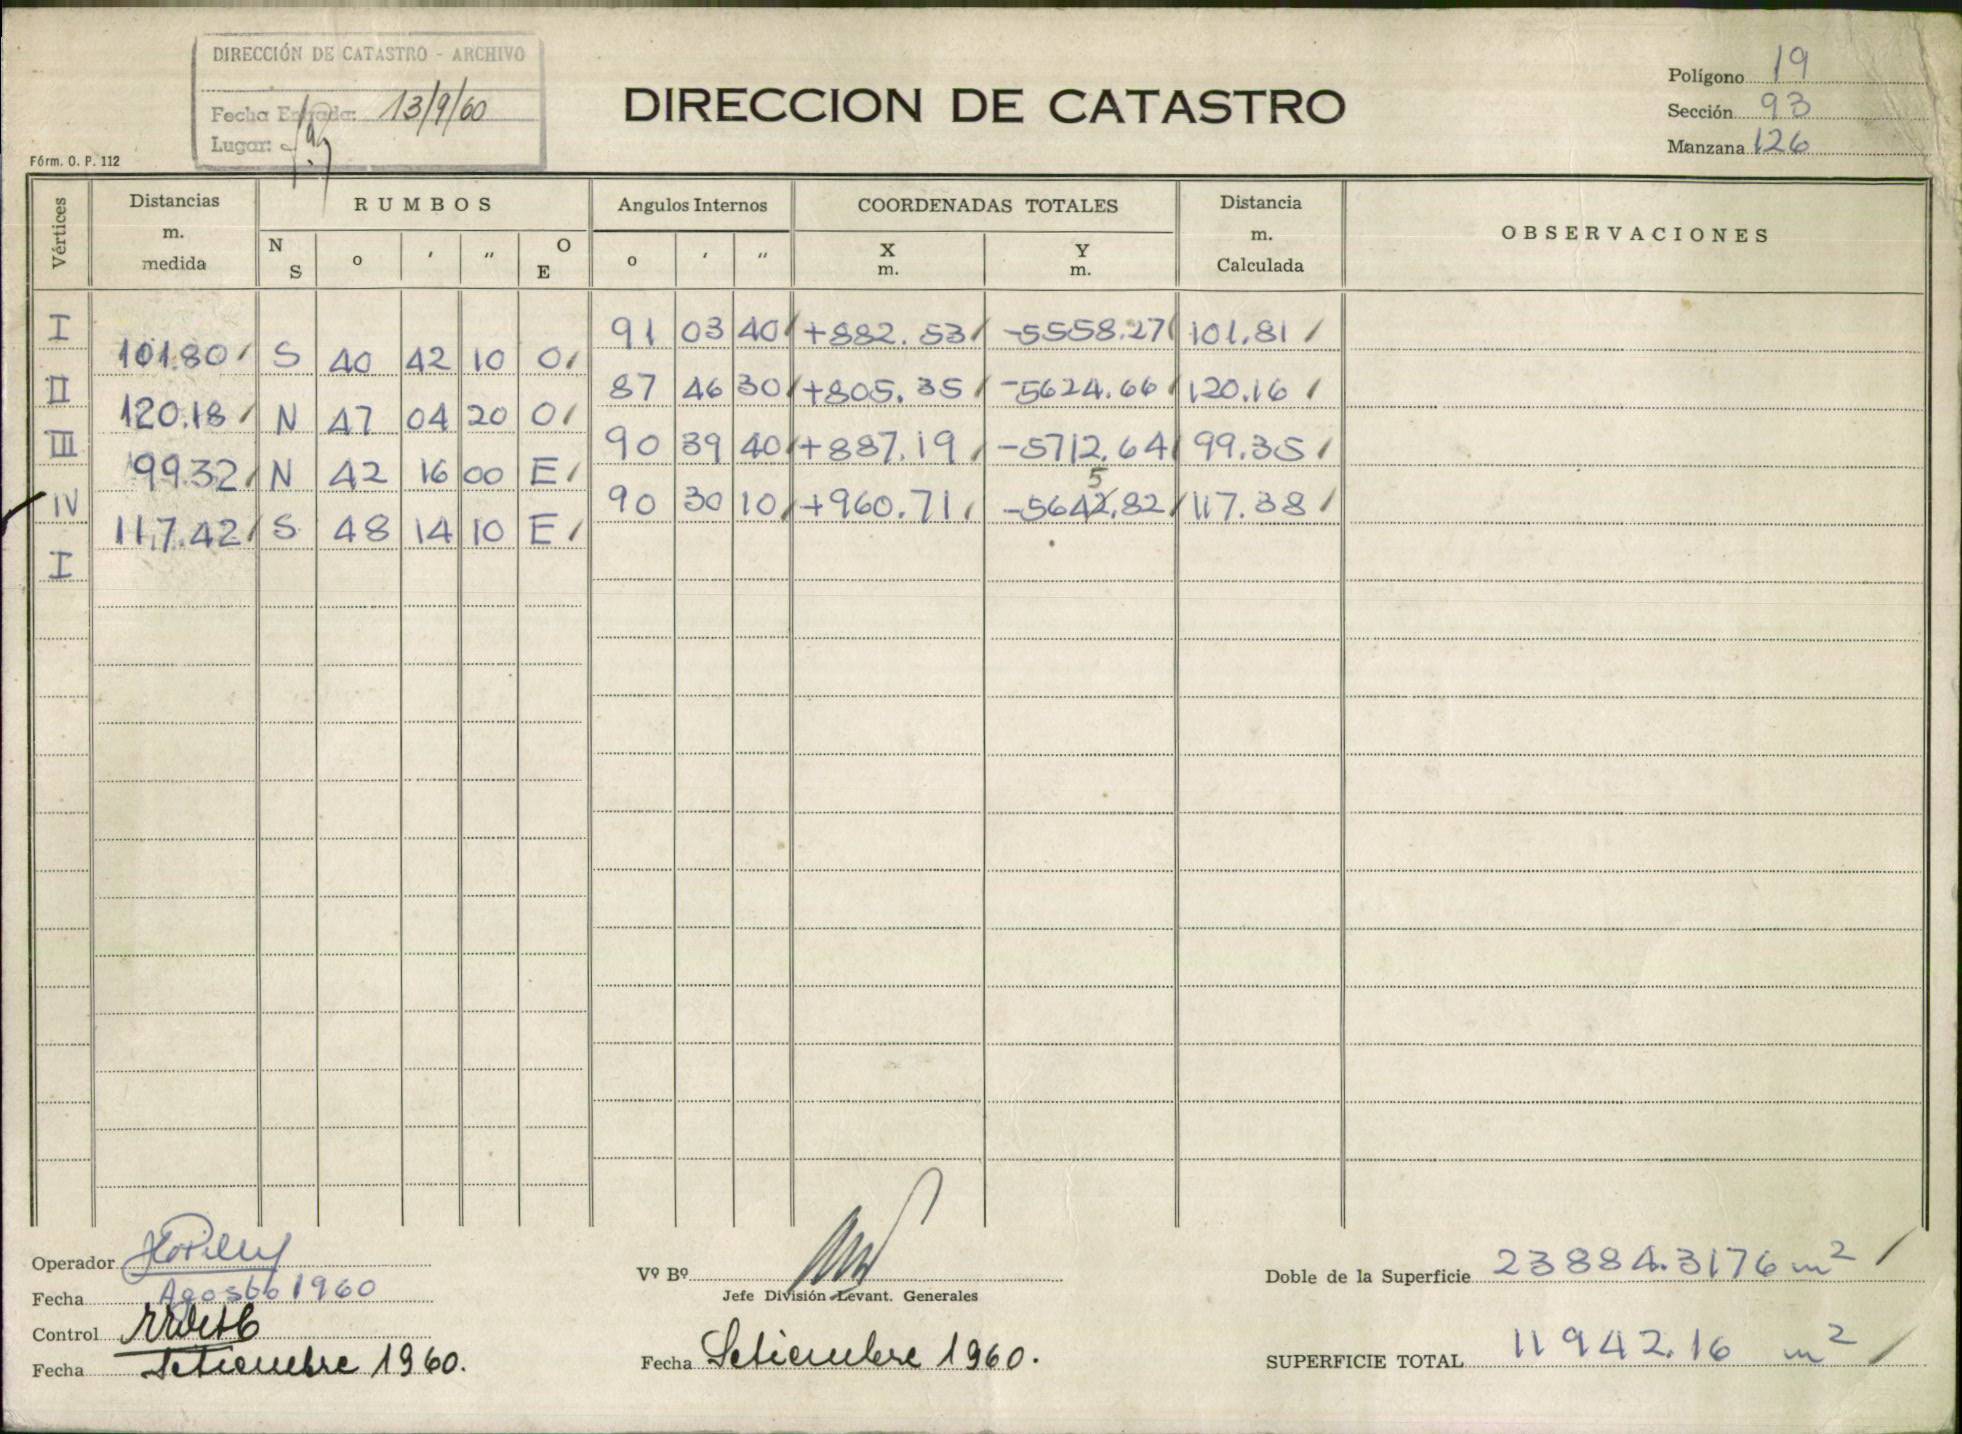 DIRECCIÓN DE CATASTRO - ARCHIVO
Fecha Entrada: 13/9/60
Lugar:
Fórm. O. P. 112
DIRECCION DE CATASTRO
Polígono 19
Sección 93
Manzana 126
Vértices
Distancias m. medida
RUMBOS
Angulos Internos
COORDENADAS TOTALES
Distancia m. Calculada
OBSERVACIONES
N S o ' " O E
o ' "
X m. Y m.
I 91 03 40 +882.53 -5558.27 101.81
101.80 S 40 42 10 O
II 87 46 30 +805.35 -5624.66 120.16
120.18 N 47 04 20 O
III 90 39 40 +887.19 -5712.64 99.35
99.32 N 42 16 00 E
5
IV 90 30 10 +960.71 -5642.82 117.38
117.42 S 48 14 10 E
I
Operador
Fecha Agosto 1960
Control
Fecha Setiembre 1960.
Vº Bº
Jefe División Levant. Generales
Fecha Setiembre 1960.
Doble de la Superficie 23884.3176 m2
SUPERFICIE TOTAL 11942.16 m2